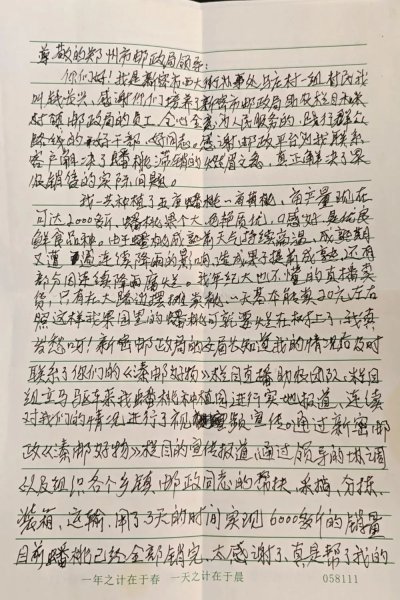 尊敬的郑州市邮政局领导:
你们好!我是新密市西大街办事处马庄村一组村民我
叫钱 感谢你们培养了新密市邮政局助农栏目和来
对领 邮政局的员工,全心全意为人民服务的,践行群众
路线的好干部,好同志。感谢邮政平台为我联系
客户解决了蟠桃滞销的燃眉之急,真正解决了果
农销售的实际问题。
我一共种植了五亩蟠桃、 黄桃、亩产量现在
可达2000多斤,蟠桃果个大、色艳质优、口感好,是优质
鲜食品种。由于蟠桃成熟前天气持续高温、成熟期
又遭遇连续降雨的影响、造成果子提前成熟,还有
部分因连续降雨腐烂。我年纪大也不懂的直播卖
货,只有在大路边摆摊卖桃、一天基本能卖20元左右
照这样我果园里的蟠桃可就要烂在树上了,我真
发愁呀!新密邮政局的 局长知道我的情况后及时
联系了你们的《溱邮好物》栏目直播助农团队、栏目
组立马驱车来我蟠桃种植园进行实地报道、连续
对我们的情况进行了视频宣传。通过新密邮
政《溱邮好物》栏目的宣传报道,通过领导的协调
以及组织各个乡镇、邮政同志的帮扶、采摘、分拣、
装箱、运输、用了3天的时间实现6000多斤的销量
目前蟠桃已经全部销完、太感谢了、真是帮了我的
一年之计在于春 一天之计在于晨 058111